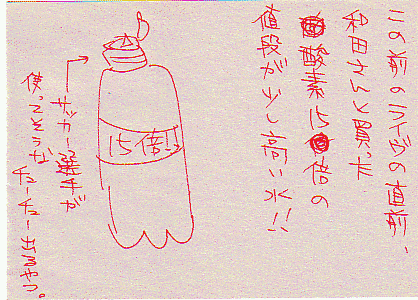 この前のライヴの直前、
和田さんと買った
酸素15倍の
値段が少し高い水!!
15倍!!
サッカー選手が
使ってそうな
チューチュー出るやつ。